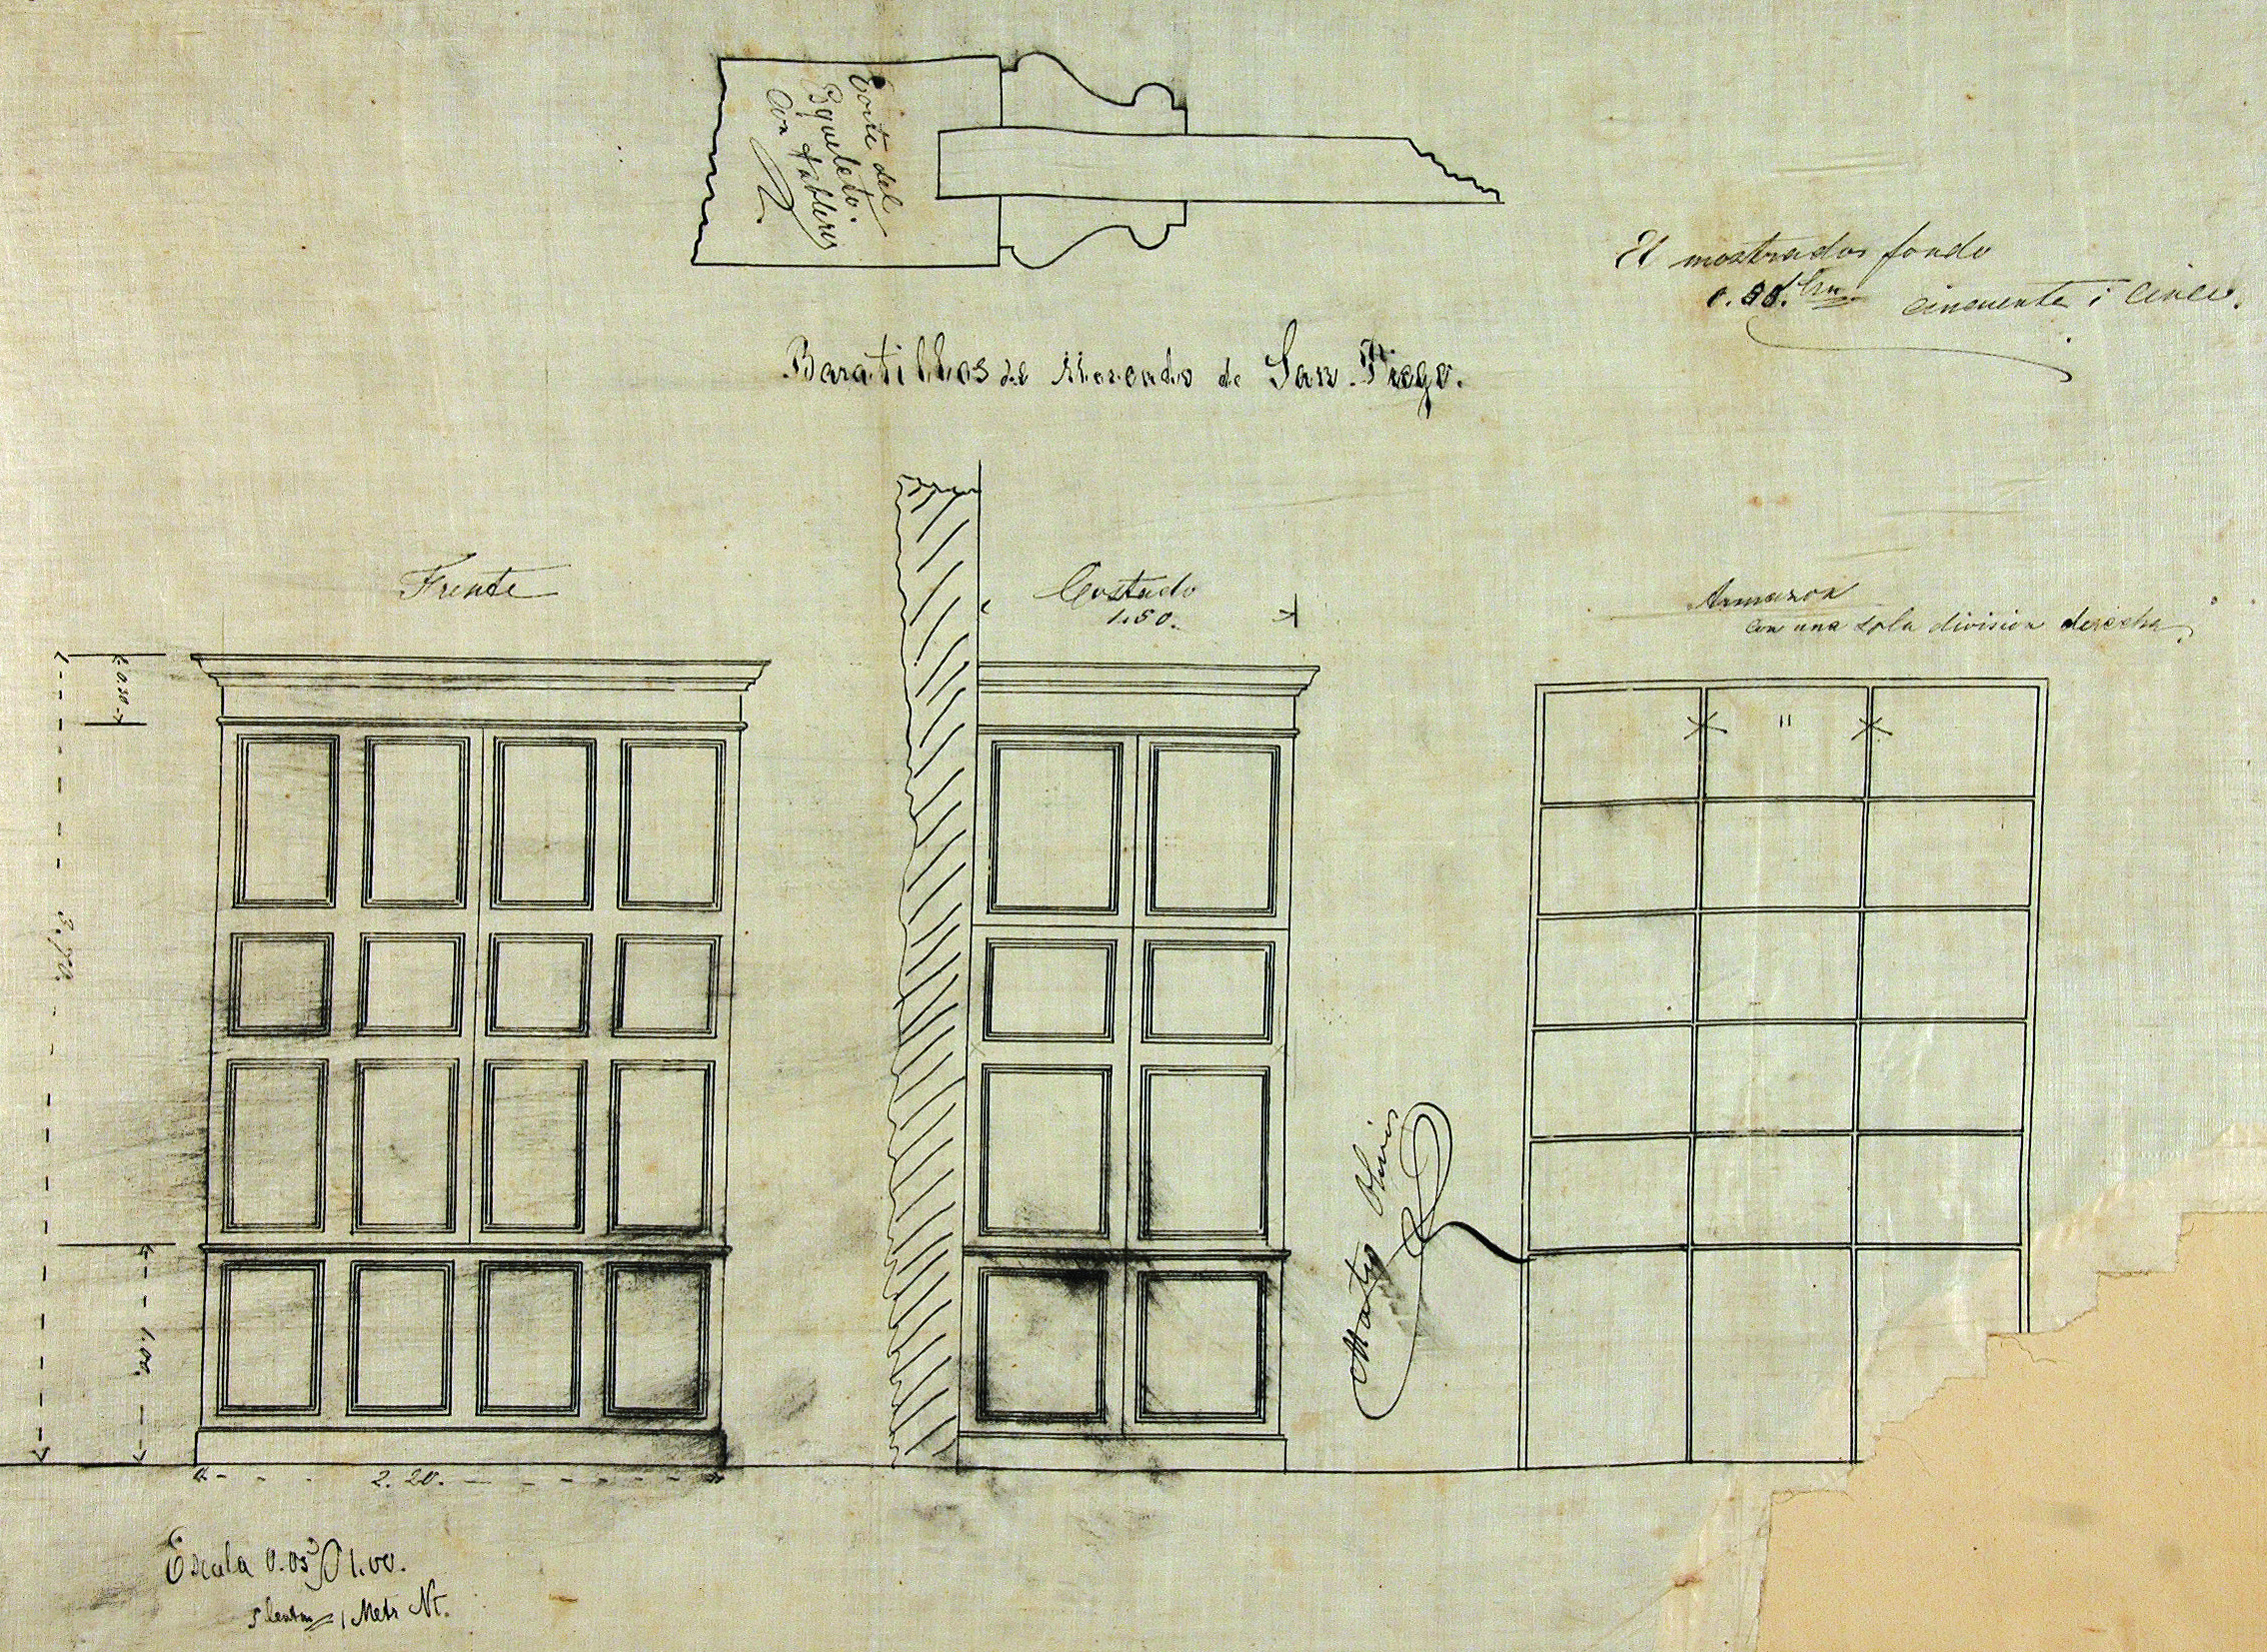 Corte del
Esqueleto.
Con tableros
El mostrador fondo
cincuenta i cinco.
Baratillos del Mercado de San Diego.
Frente
Costado
1.50.
Armazon
con una sola division derecha
0.30
3.70.
1.00.
2.20.
Mateo Olivios
Escala 0.05 P 1.00.
5 Centm = 1 Metr